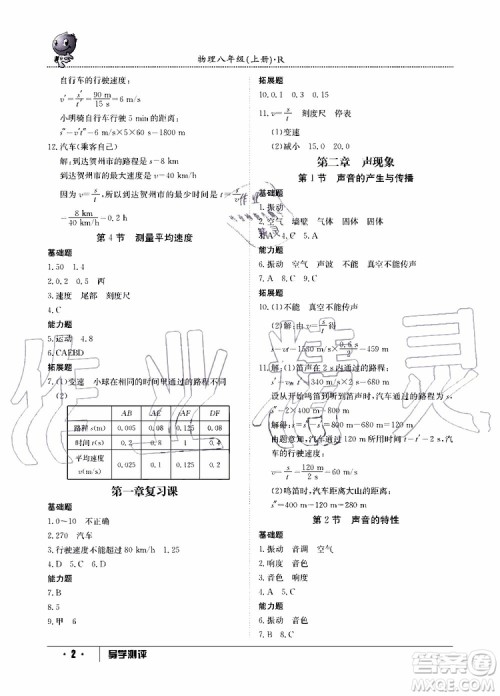 物理八年级(上册)·R
自行车的行驶速度:
v'=s'/t'=90 m/15 s=6 m/s
小明骑自行车行驶 5 min 的距离:
12.汽车(乘客自己)
解:到达贺州市的路程 s=8 km
到达贺州市的最大速度 v=40 km/h
因为 v=s/t,所以到达贺州市的时间 t=s/v
=8 km/40 km/h=0.2 h
第 4 节 测量平均速度
基础题
1.50 1.4
2.0.2 0.5 西
3.速度 尾部 刻度尺
4.C
能力题
5.运动 4.8
6.CAEBD
拓展题
7.(1)变速 小球在相同的时间里通过的路程不同
(2)
AB AE AF DF
路程 s(m) 0.005 0.08 0.125 0.08
时间 t(s) 0.2 0.8 1 0.4
平均速度 v(m/s) 0.025 0.1 0.125 0.2
第一章复习课
基础题
1.0~10 不正确
2.270 汽车
3.行驶速度不得超过 80 km/h 120
4.D 5.C 6.C
能力题
7.C 8.B
9.甲 6
拓展题
10.0.1 0.3 15
11.v=s/t 刻度尺 停表
(1)变速
(2)减小 15.0 20.0
第二章 声现象
第 1 节 声音的产生与传播
基础题
1.振动
2.空气 墙壁 空气、固体
3.A 4.C 5.A
能力题
6.振动 空气 声波 真空不能传声
7.A 8.C 9.B
拓展题
10.(1)不能 真空不能传声
(2)能
11.解:(1)解:笛声在 2 s 内通过的路程:
设从开始鸣笛到听到回声,汽车行驶的路程为 s',
由题意知,汽车通过 s' 所用时间 t'=t=2 s,
(2)鸣笛时,汽车距离大山的距离:
第 2 节 声音的特性
基础题
1.振动 音调 空气
2.响度 音色
3.音调 音色
4.A 5.B 6.A
能力题
7.响度 振动 音色
8.D 9.B 10.A
· 2 · 导学测评